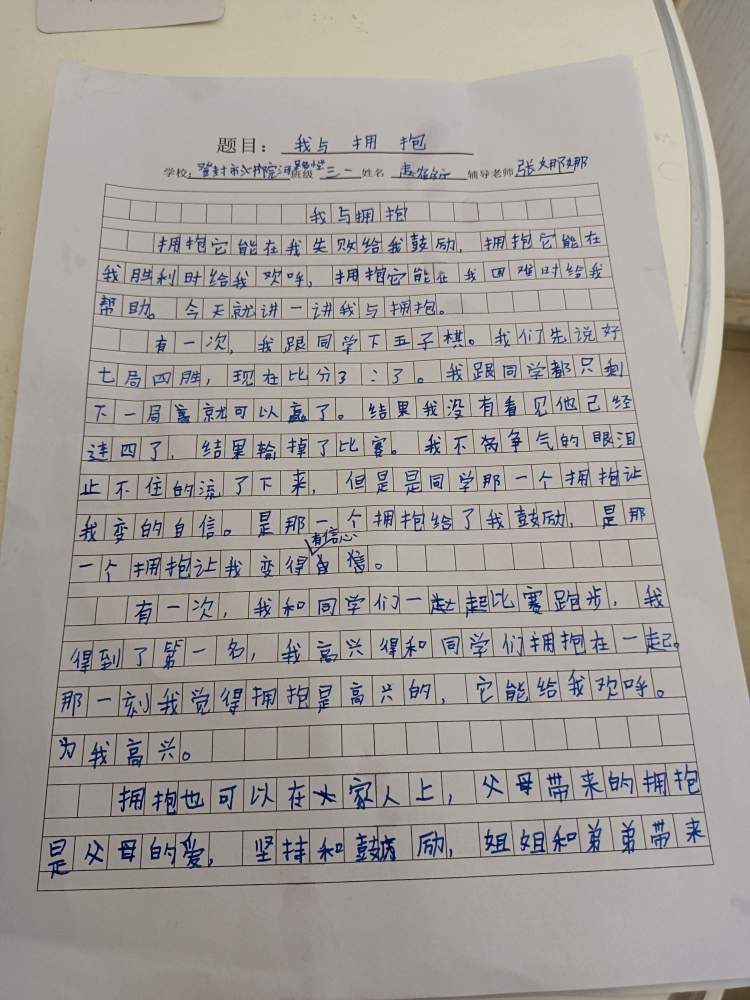 题目: 我与拥抱
学校: 登封市 书院河 小学 班级 三一 姓名 辅导老师 张娜娜
我与拥抱
拥抱它能在我失败给我鼓励，拥抱它能在
我胜利时给我欢呼，拥抱它能在我困难时给我
帮助。今天就讲一讲我与拥抱。
有一次，我跟同学下五子棋。我们先说好
七局四胜，现在比分3:3。我跟同学都只剩
下一局就可以赢了。结果我没有看见他已经
连四了，结果输掉了比赛。我不争气的眼泪
止不住的流了下来，但是是同学那一个拥抱让
我变的自信。是那一个拥抱给了我鼓励，是那
一个拥抱让我变得有信心。
有一次，我和同学们一起比赛跑步，我
得到了第一名，我高兴得和同学们拥抱在一起。
那一刻我觉得拥抱是高兴的，它能给我欢呼。
为我高兴。
拥抱也可以在家人上，父母带来的拥抱
是父母的爱，坚持和鼓励，姐姐和弟弟带来